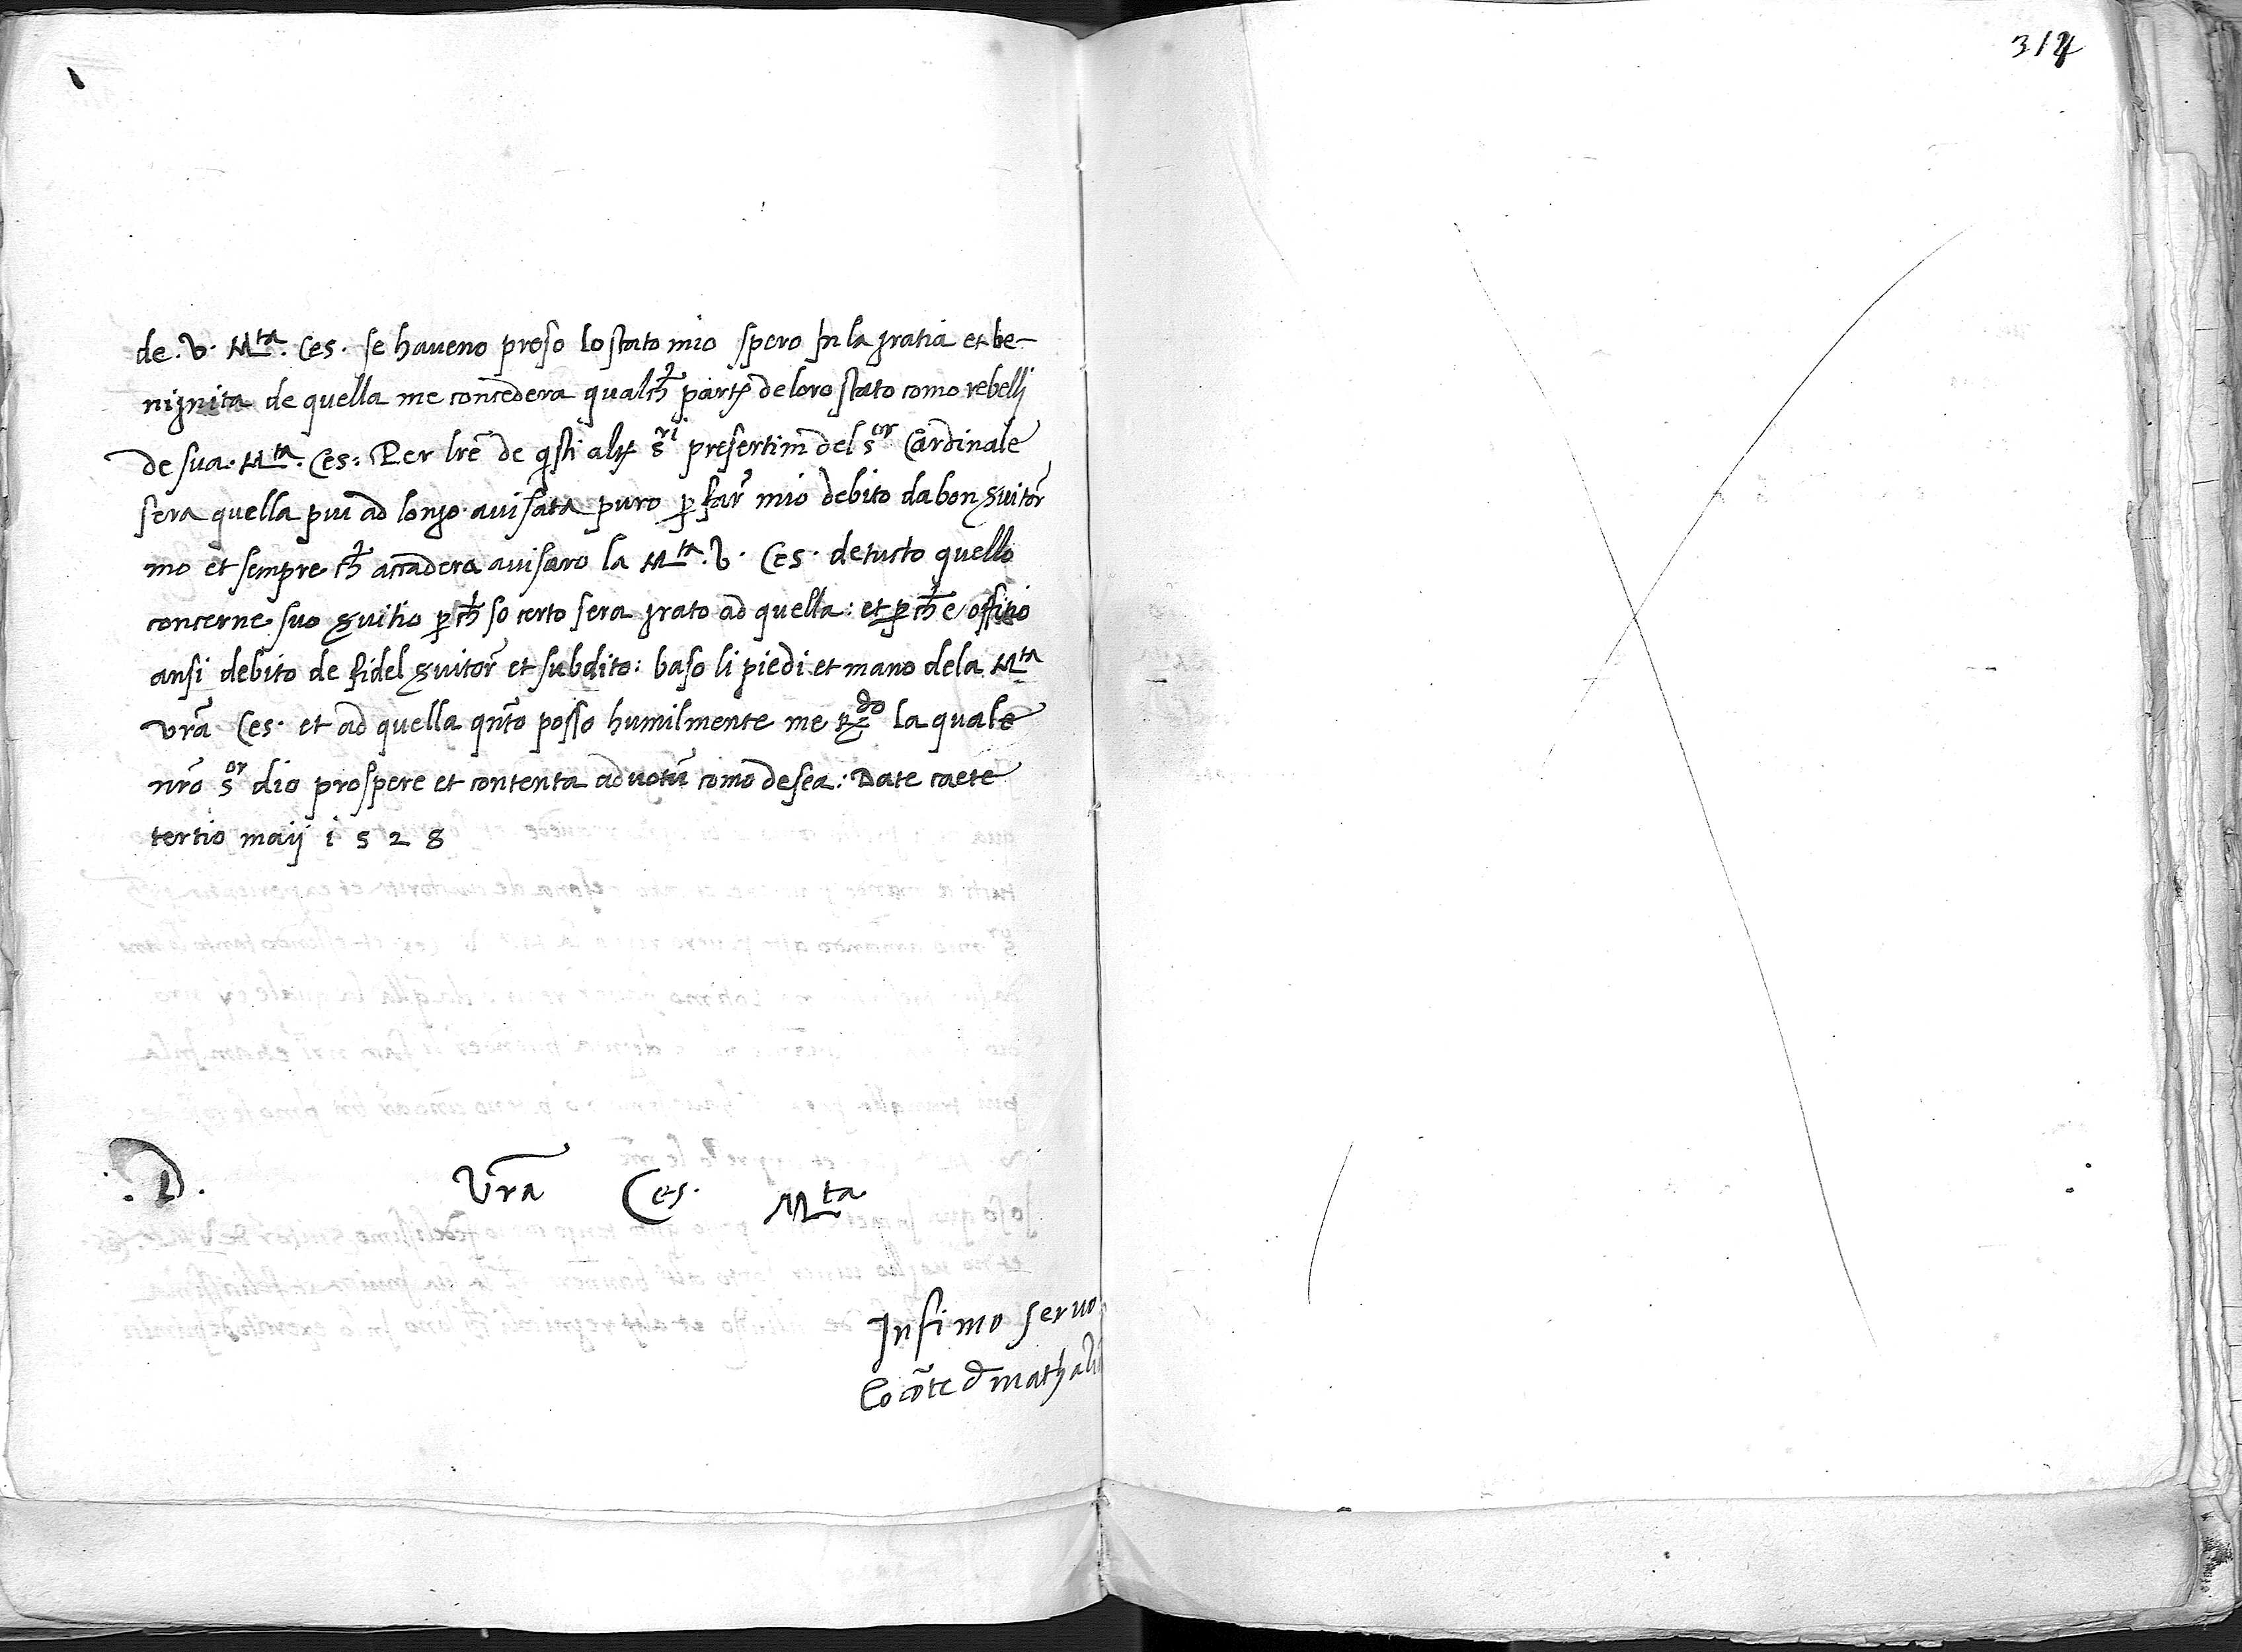 314
de .V. M.ta Ces. se haveno preso lo stato mio spero In la gratia et be-
nignita de quella me concedera qualch̃ parte de loro stato como rebelli
de sua. M.ta Ces: Per lr̃e de q̃sti altj s.ri presertim̃ del s.or Cardinale
sera quella piu ad longo avisata puro ꝑ far̃ mio debito da bon ẜuitor̃
mo et sempre ch̃ accadera avisaro la M.ta V. Ces. de tucto quello
concerne suo ẜuitio ꝑch̃ so certo sera grato ad quella: et ꝑch̃ e offitio
ansi debito de fidel ẜuitor̃ et subdito: baso li piedi et mano dela M.ta
vrã Ces. et ad quella qñto posso humilmente me R.do la quale
nrõ s.or dio prospere et contenta ad votũ como desea: Date caete
tertio maij i 5 2 8
.D. Vrã Ces. M.ta
Infimo servo
lo cõte d mathalũ